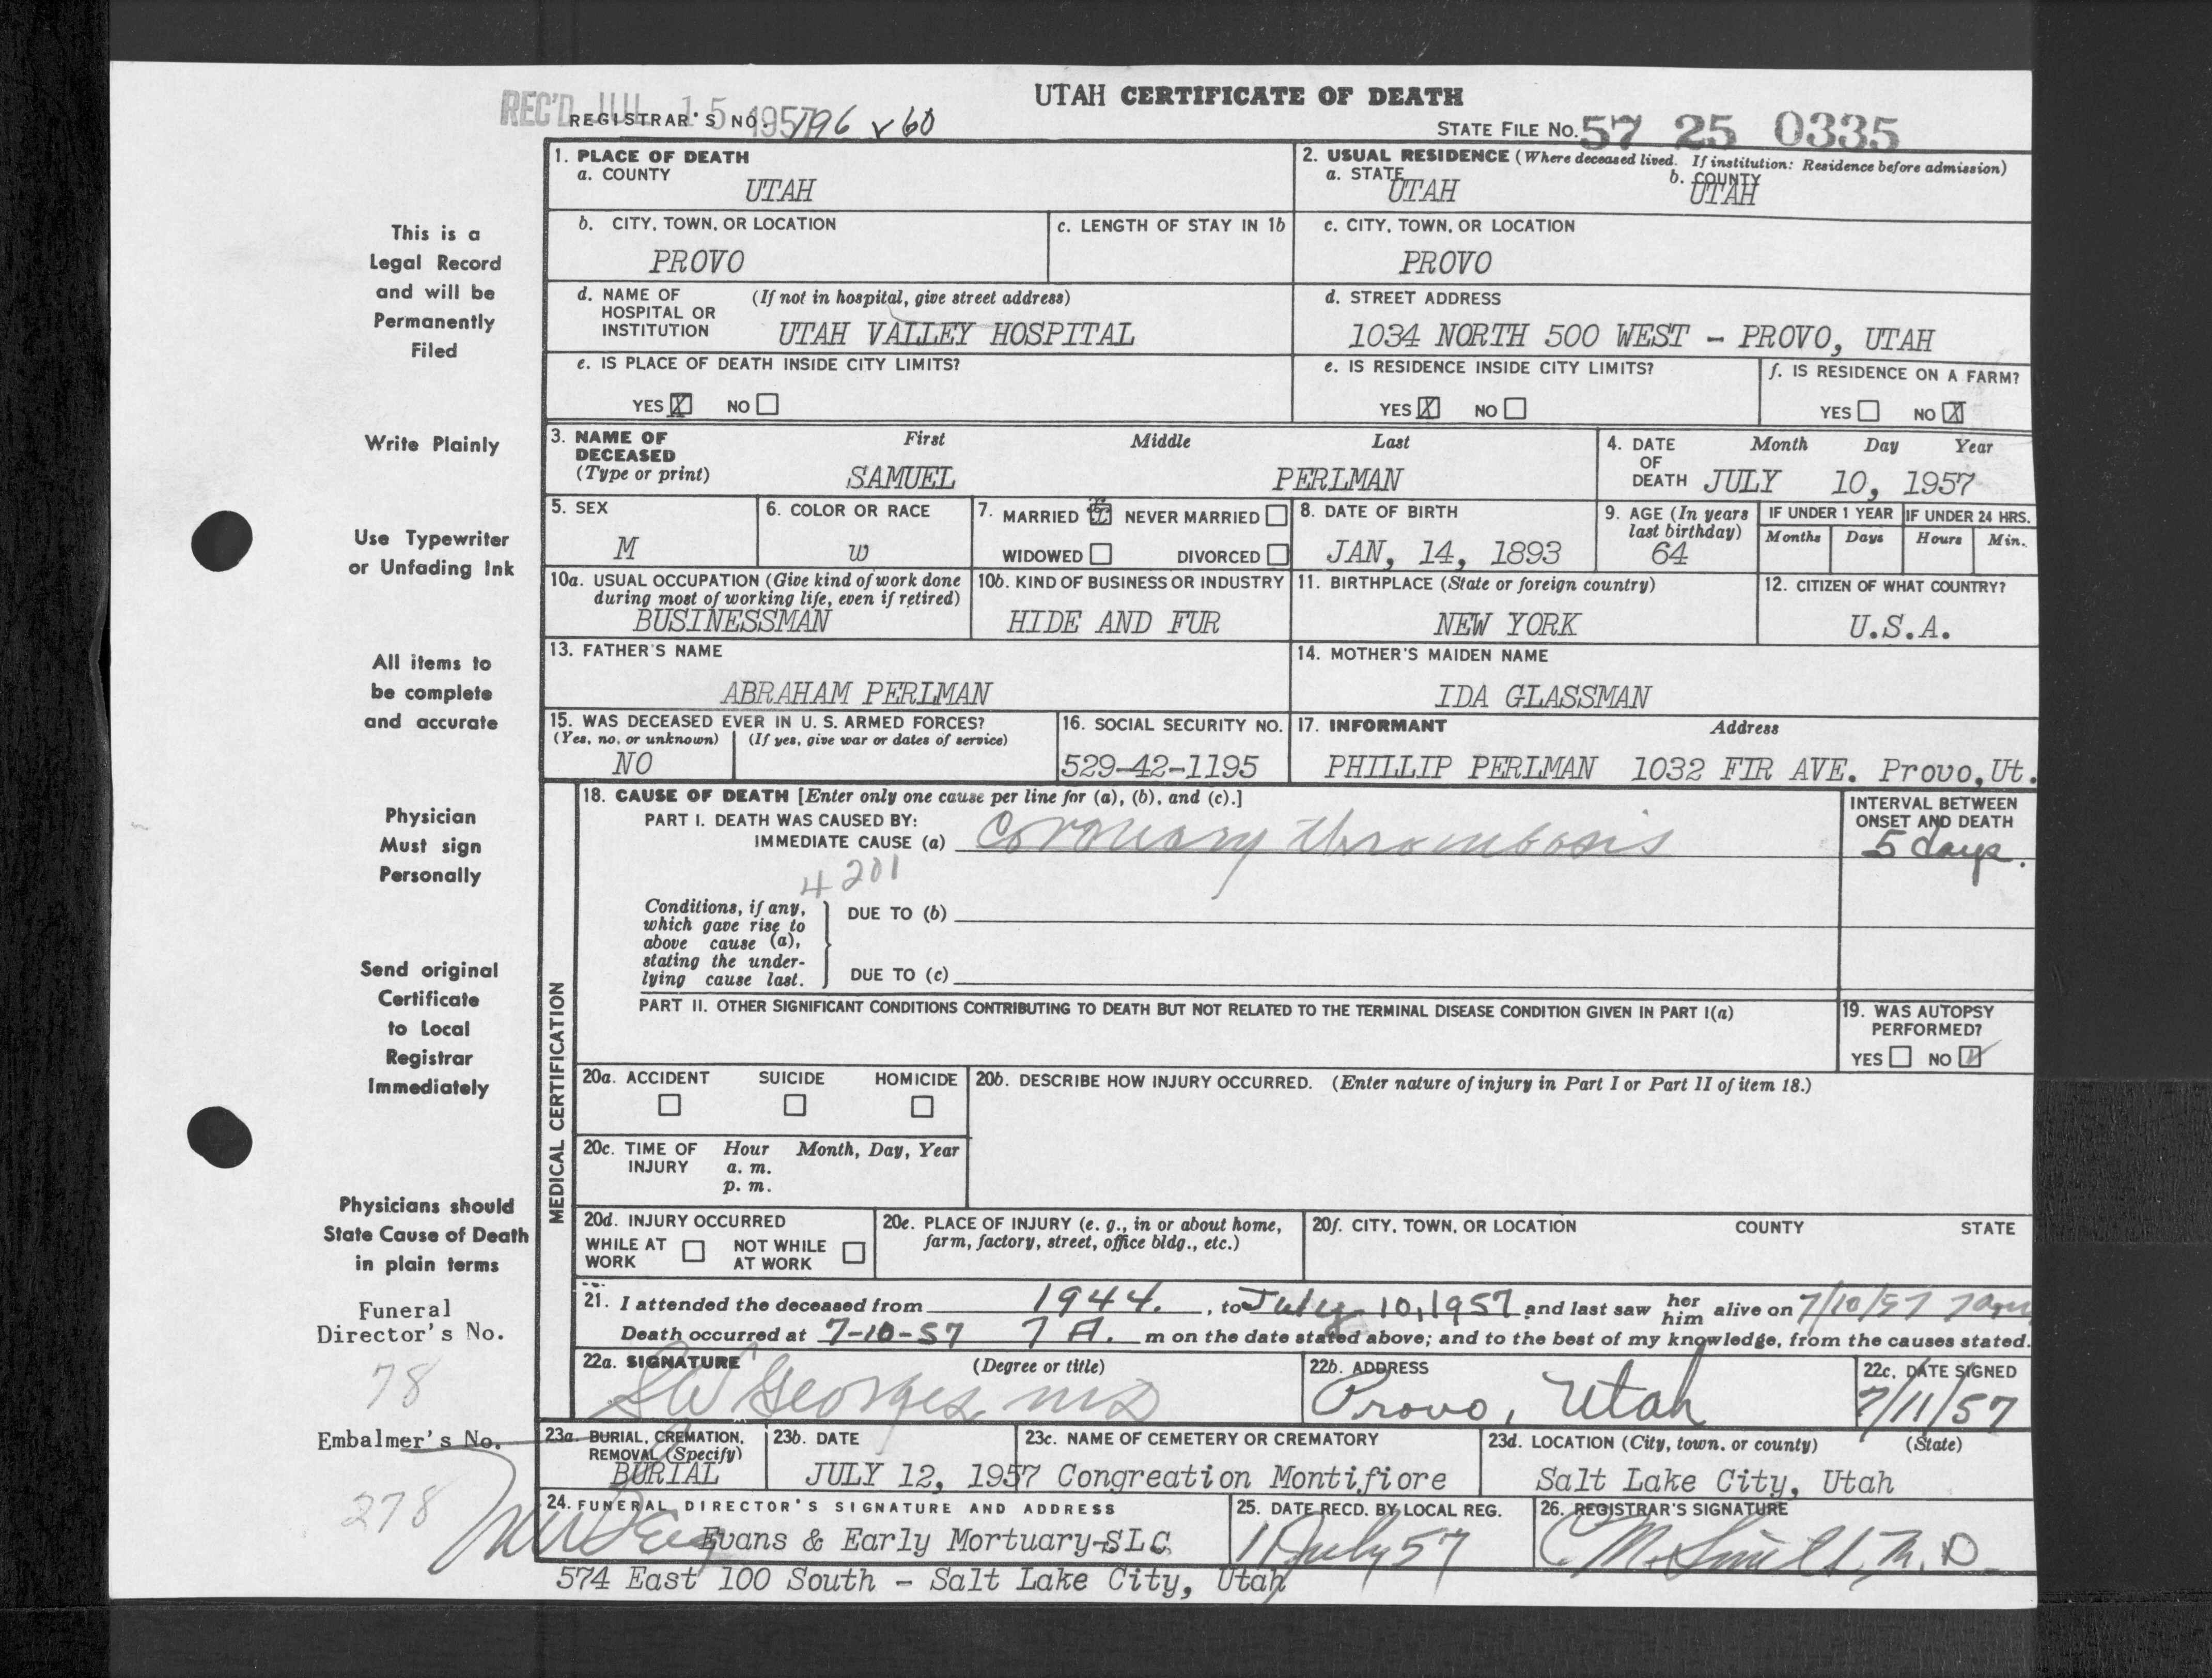 UTAH CERTIFICATE OF DEATH
REC'D JUL 15 1957
REGISTRAR'S NO. 196 x 60
STATE FILE NO. 57 25 0335
1. PLACE OF DEATH
a. COUNTY
UTAH
2. USUAL RESIDENCE (Where deceased lived. If institution: Residence before admission)
a. STATE
UTAH
b. COUNTY
UTAH
b. CITY, TOWN, OR LOCATION
PROVO
c. LENGTH OF STAY IN 1b
c. CITY, TOWN, OR LOCATION
PROVO
d. NAME OF HOSPITAL OR INSTITUTION
(If not in hospital, give street address)
UTAH VALLEY HOSPITAL
d. STREET ADDRESS
1034 NORTH 500 WEST - PROVO, UTAH
e. IS PLACE OF DEATH INSIDE CITY LIMITS?
YES X NO
e. IS RESIDENCE INSIDE CITY LIMITS?
YES X NO
f. IS RESIDENCE ON A FARM?
YES NO X
3. NAME OF DECEASED
(Type or print)
First Middle Last
SAMUEL PERLMAN
4. DATE OF DEATH
Month Day Year
JULY 10, 1957
5. SEX
M
6. COLOR OR RACE
W
7. MARRIED NEVER MARRIED
WIDOWED DIVORCED
8. DATE OF BIRTH
JAN, 14, 1893
9. AGE (In years last birthday)
64
IF UNDER 1 YEAR
Months Days
IF UNDER 24 HRS.
Hours Min.
10a. USUAL OCCUPATION (Give kind of work done during most of working life, even if retired)
BUSINESSMAN
10b. KIND OF BUSINESS OR INDUSTRY
HIDE AND FUR
11. BIRTHPLACE (State or foreign country)
NEW YORK
12. CITIZEN OF WHAT COUNTRY?
U.S.A.
13. FATHER'S NAME
ABRAHAM PERLMAN
14. MOTHER'S MAIDEN NAME
IDA GLASSMAN
15. WAS DECEASED EVER IN U. S. ARMED FORCES?
(Yes, no, or unknown) (If yes, give war or dates of service)
NO
16. SOCIAL SECURITY NO.
529-42-1195
17. INFORMANT Address
PHILLIP PERLMAN 1032 FIR AVE. Provo, Ut.
MEDICAL CERTIFICATION
18. CAUSE OF DEATH [Enter only one cause per line for (a), (b), and (c).]
PART I. DEATH WAS CAUSED BY:
IMMEDIATE CAUSE (a) Coronary thrombosis
INTERVAL BETWEEN ONSET AND DEATH
5 days.
4201
Conditions, if any, which gave rise to above cause (a), stating the underlying cause last.
DUE TO (b)
DUE TO (c)
PART II. OTHER SIGNIFICANT CONDITIONS CONTRIBUTING TO DEATH BUT NOT RELATED TO THE TERMINAL DISEASE CONDITION GIVEN IN PART I(a)
19. WAS AUTOPSY PERFORMED?
YES NO
20a. ACCIDENT SUICIDE HOMICIDE
20b. DESCRIBE HOW INJURY OCCURRED. (Enter nature of injury in Part I or Part II of item 18.)
20c. TIME OF INJURY
Hour Month, Day, Year
a. m.
p. m.
20d. INJURY OCCURRED
WHILE AT WORK NOT WHILE AT WORK
20e. PLACE OF INJURY (e. g., in or about home, farm, factory, street, office bldg., etc.)
20f. CITY, TOWN, OR LOCATION COUNTY STATE
21. I attended the deceased from 1944. , to July 10, 1957 and last saw her him alive on 7/10/57 7am
Death occurred at 7-10-57 7 A. m on the date stated above; and to the best of my knowledge, from the causes stated.
22a. SIGNATURE (Degree or title)
SW Georges, MD
22b. ADDRESS
Provo, Utah
22c. DATE SIGNED
7/11/57
23a. BURIAL, CREMATION, REMOVAL (Specify)
BURIAL
23b. DATE
JULY 12, 1957
23c. NAME OF CEMETERY OR CREMATORY
Congreation Montifiore
23d. LOCATION (City, town, or county) (State)
Salt Lake City, Utah
24. FUNERAL DIRECTOR'S SIGNATURE AND ADDRESS
Evans & Early Mortuary-SLC
574 East 100 South - Salt Lake City, Utah
25. DATE RECD. BY LOCAL REG.
11 July 57
26. REGISTRAR'S SIGNATURE
C M Smith, M. D.
This is a
Legal Record
and will be
Permanently
Filed
Write Plainly
Use Typewriter
or Unfading Ink
All items to
be complete
and accurate
Physician
Must sign
Personally
Send original
Certificate
to Local
Registrar
Immediately
Physicians should
State Cause of Death
in plain terms
Funeral
Director's No.
78
Embalmer's No.
278